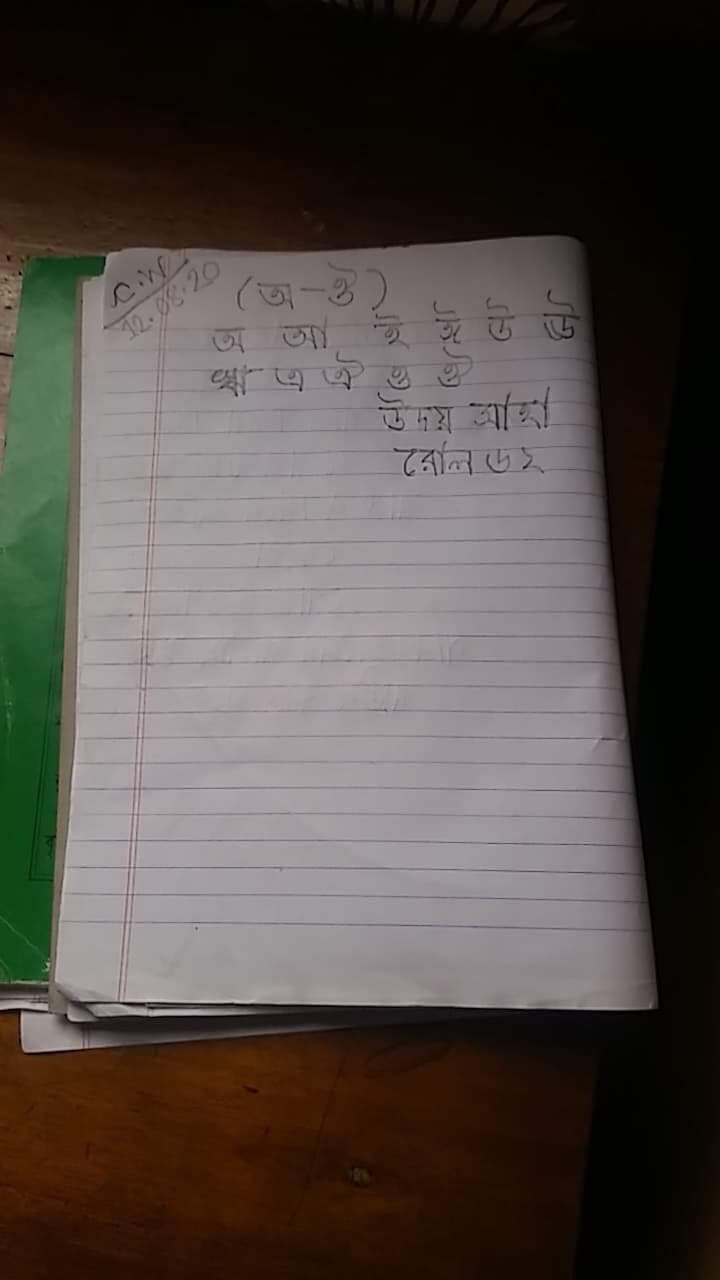 C.W
12.08.20
(অ-ঔ)
অ আ ই ঈ উ ঊ
ঋ এ ঐ ও ঔ
উদয়
রোল ৬২